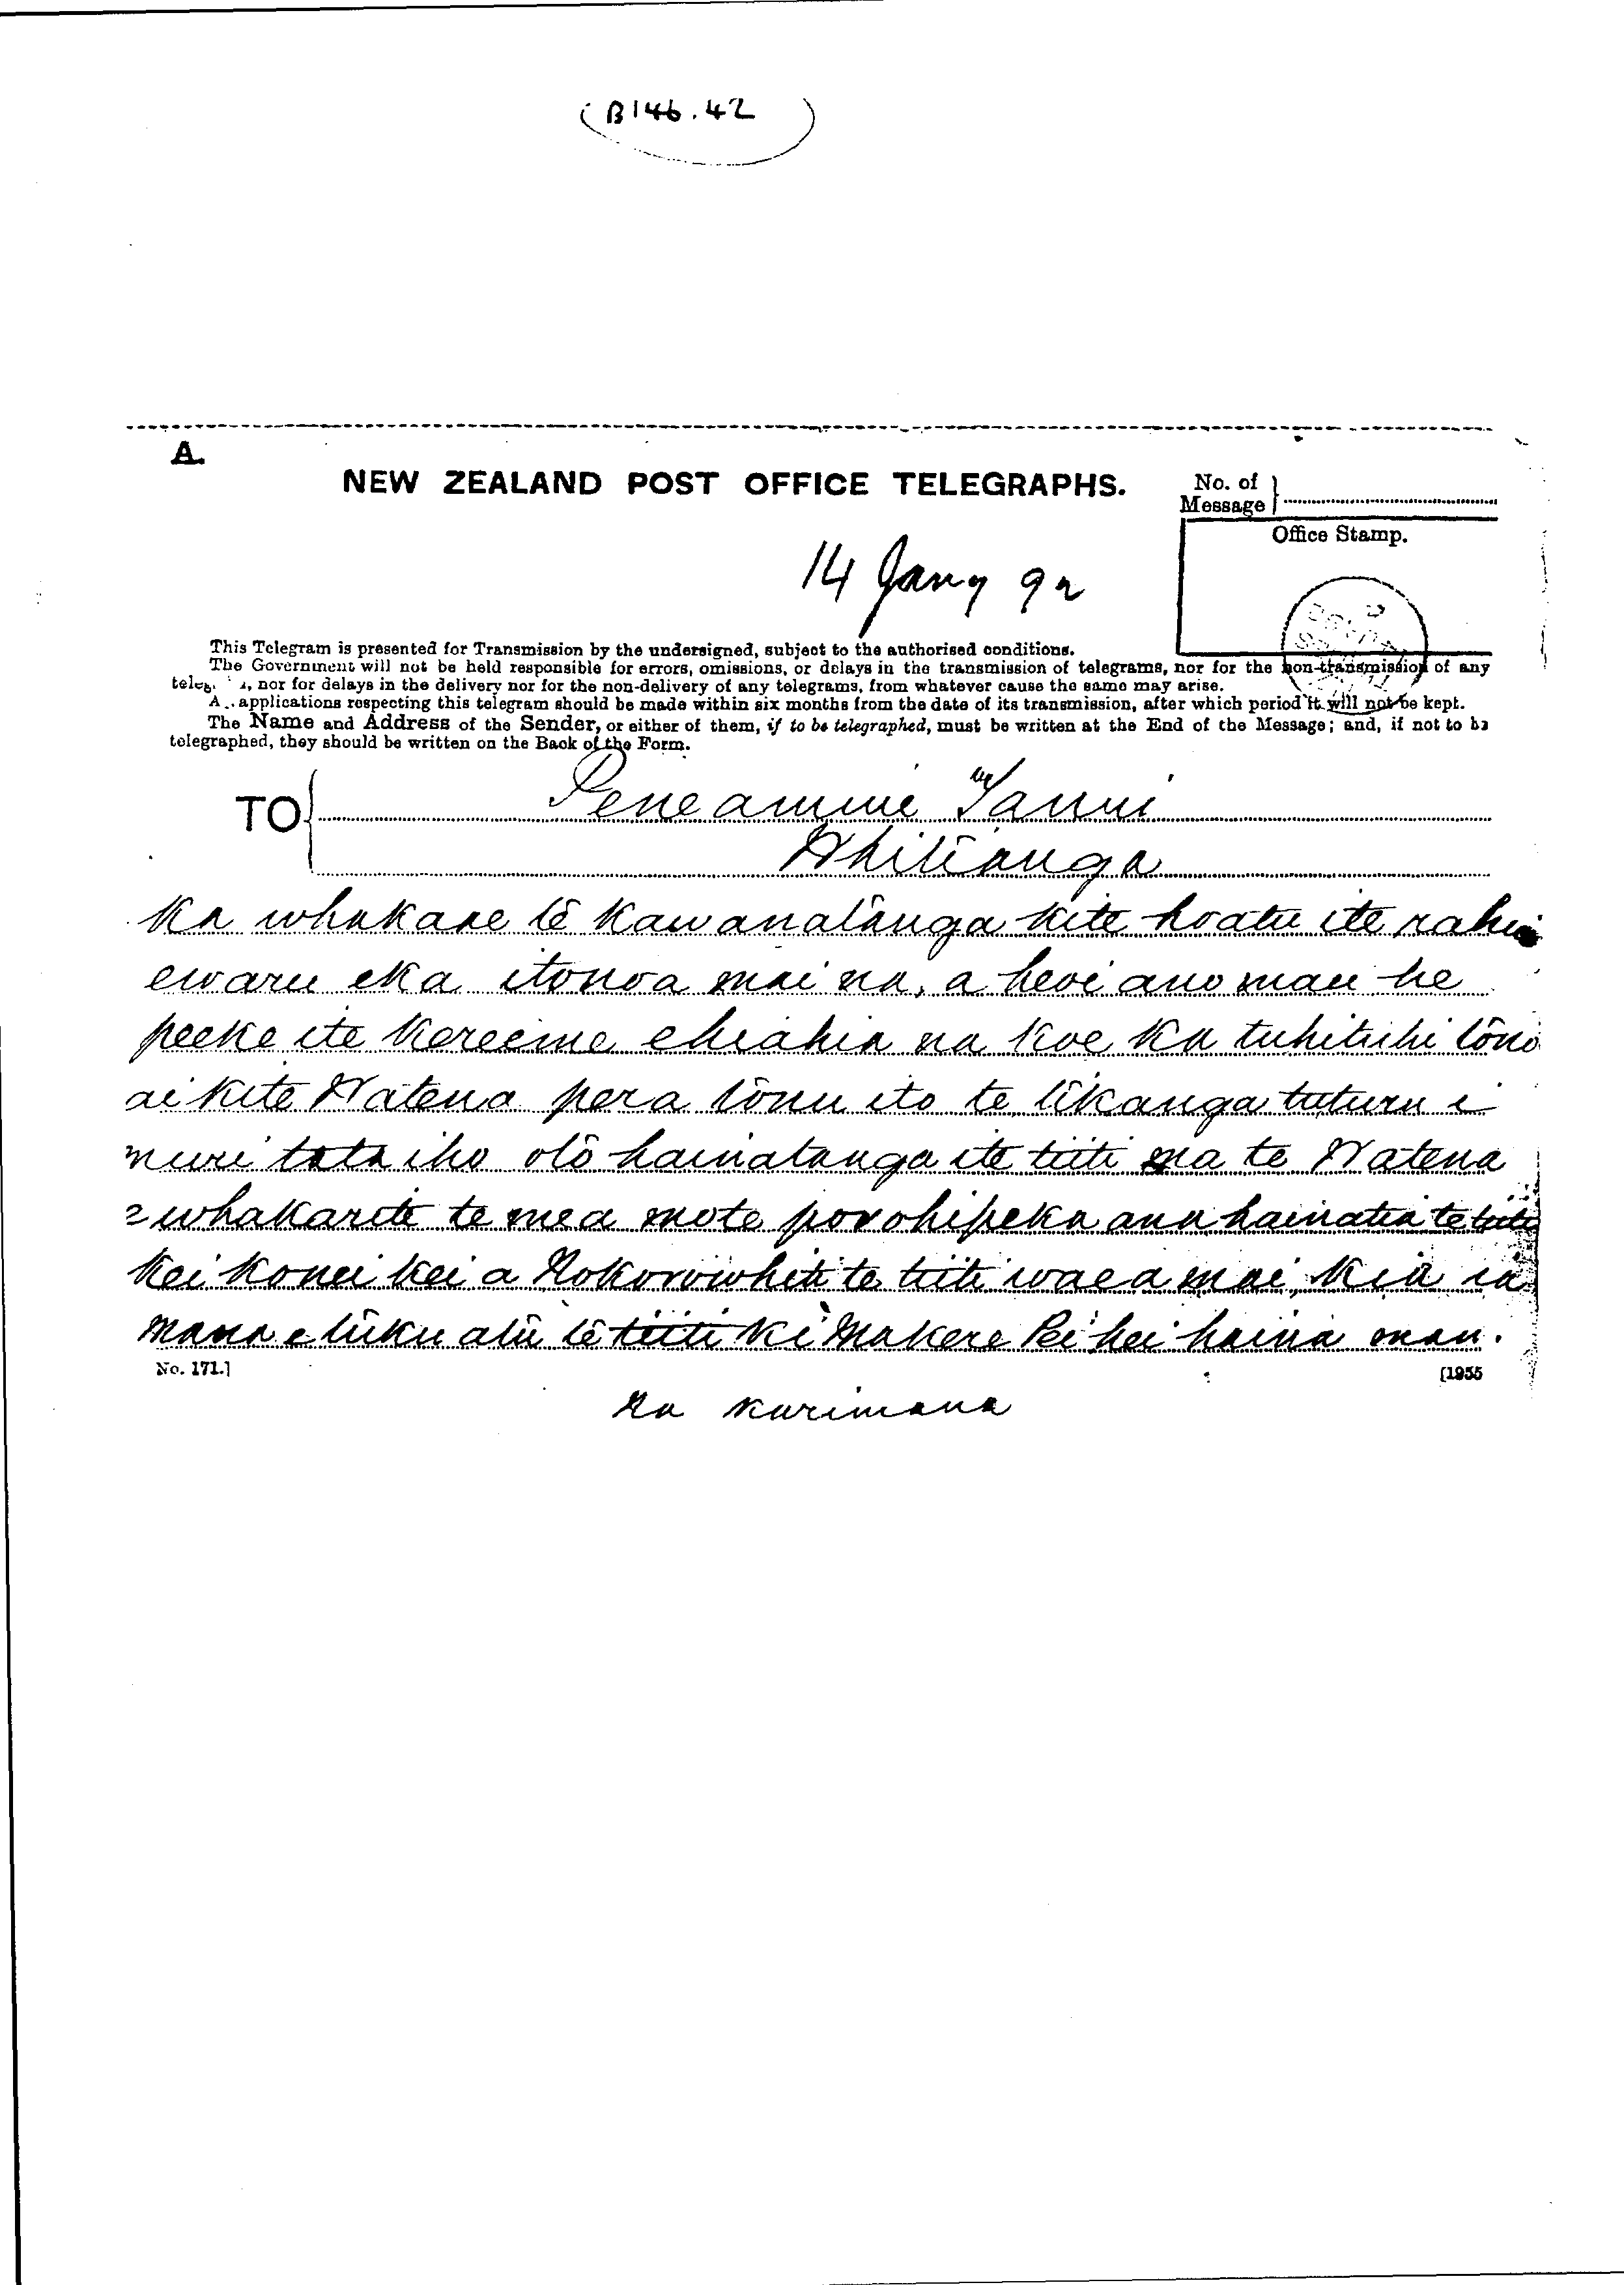 (B146.42)
A.
NEW ZEALAND POST OFFICE TELEGRAPHS.
No. of
Message
Office Stamp.
14 Jany 92
This Telegram is presented for Transmission by the undersigned, subject to the authorised conditions.
The Government will not be held responsible for errors, omissions, or delays in the transmission of telegrams, nor for the non-transmission of any
teleg, nor for delays in the delivery nor for the non-delivery of any telegrams, from whatever cause the same may arise.
A applications respecting this telegram should be made within six months from the date of its transmission, after which period it will not be kept.
The Name and Address of the Sender, or either of them, if to be telegraphed, must be written at the End of the Message; and, if not to be
telegraphed, they should be written on the Back of the Form.
TO Peneamine Tanui
Whitianga
Ka whakaae te Kawanatanga kite hoatu ite rahui
ewaru eka itonoa mai na, a heoi ano mau he
peeke ite kereeme ehiahia na koe ka tuhituhi tono
ai kite Watene pera tonu ito te tikanga tuturu i
muri tata iho oto hainatanga ite tiiti ma te Watena
e whakarite te mea mote porohipeka ana hainatia te tiiti
kei konei kei a Kokorowhiti te tiiti waea mai kia ia
Mana e tuku atu te tiiti ki Makere kei hei haina mau.
No. 171.]
[1955
Na Karimana